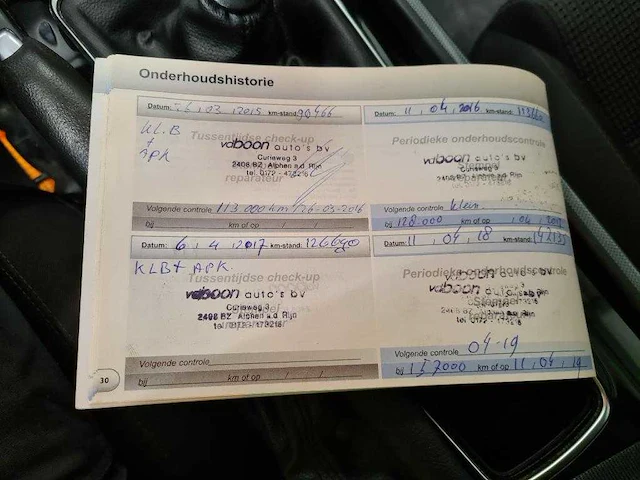 Onderhoudshistorie
Datum: 26 , 03 , 2015 km-stand: 90466
KLB
+
APK
Tussentijdse check-up
vdboon auto's bv
Curieweg 3
2408 BZ Alphen a.d. Rijn
tel. 0172 - 473216
reparateur
Volgende controle 113 000 km / 26-03-2016
bij / km of op / /
Datum: 11 , 04 , 2016 km-stand:
Periodieke onderhoudscontrole
vdboon auto's bv
Curieweg 3
2408 BZ Alphen a.d. Rijn
Volgende controle klein
bij 128 000 km of op , 04 ,
Datum: 6 , 4 , 2017 km-stand: 126690
KLB + APK.
Tussentijdse check-up
vdboon auto's bv
Curieweg 3
2408 BZ Alphen a.d. Rijn
Volgende controle
bij km of op / /
Datum: 11 , 04 , 18 km-stand: 142135
Periodieke onderhoudscontrole
vdboon auto's bv
Volgende controle 04-19
bij 157000 km of op 11 , 04 , 19
30